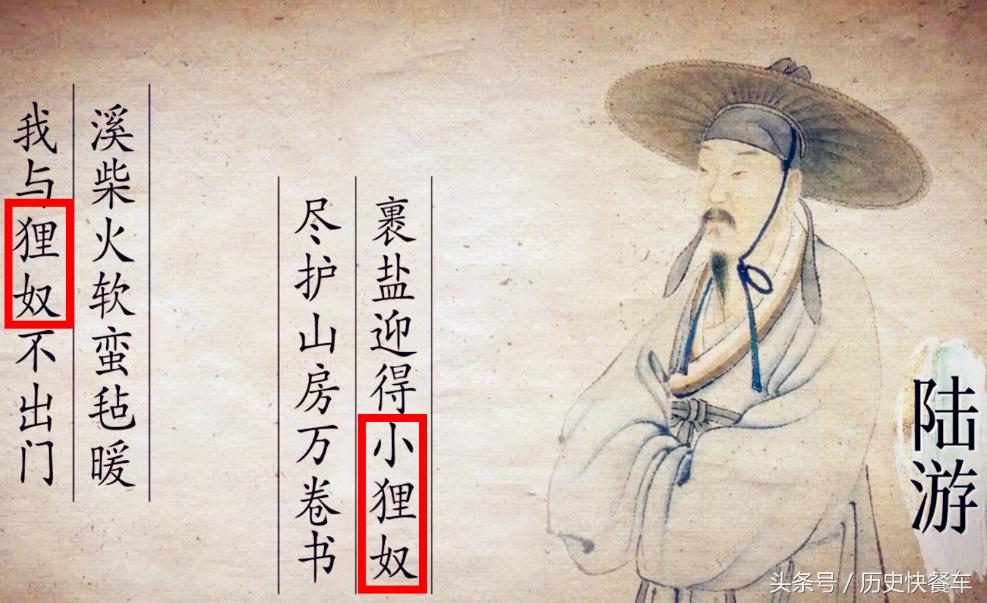 陆游
裹盐迎得小狸奴
尽护山房万卷书
溪柴火软蛮毡暖
我与狸奴不出门
头条号 / 历史快餐车